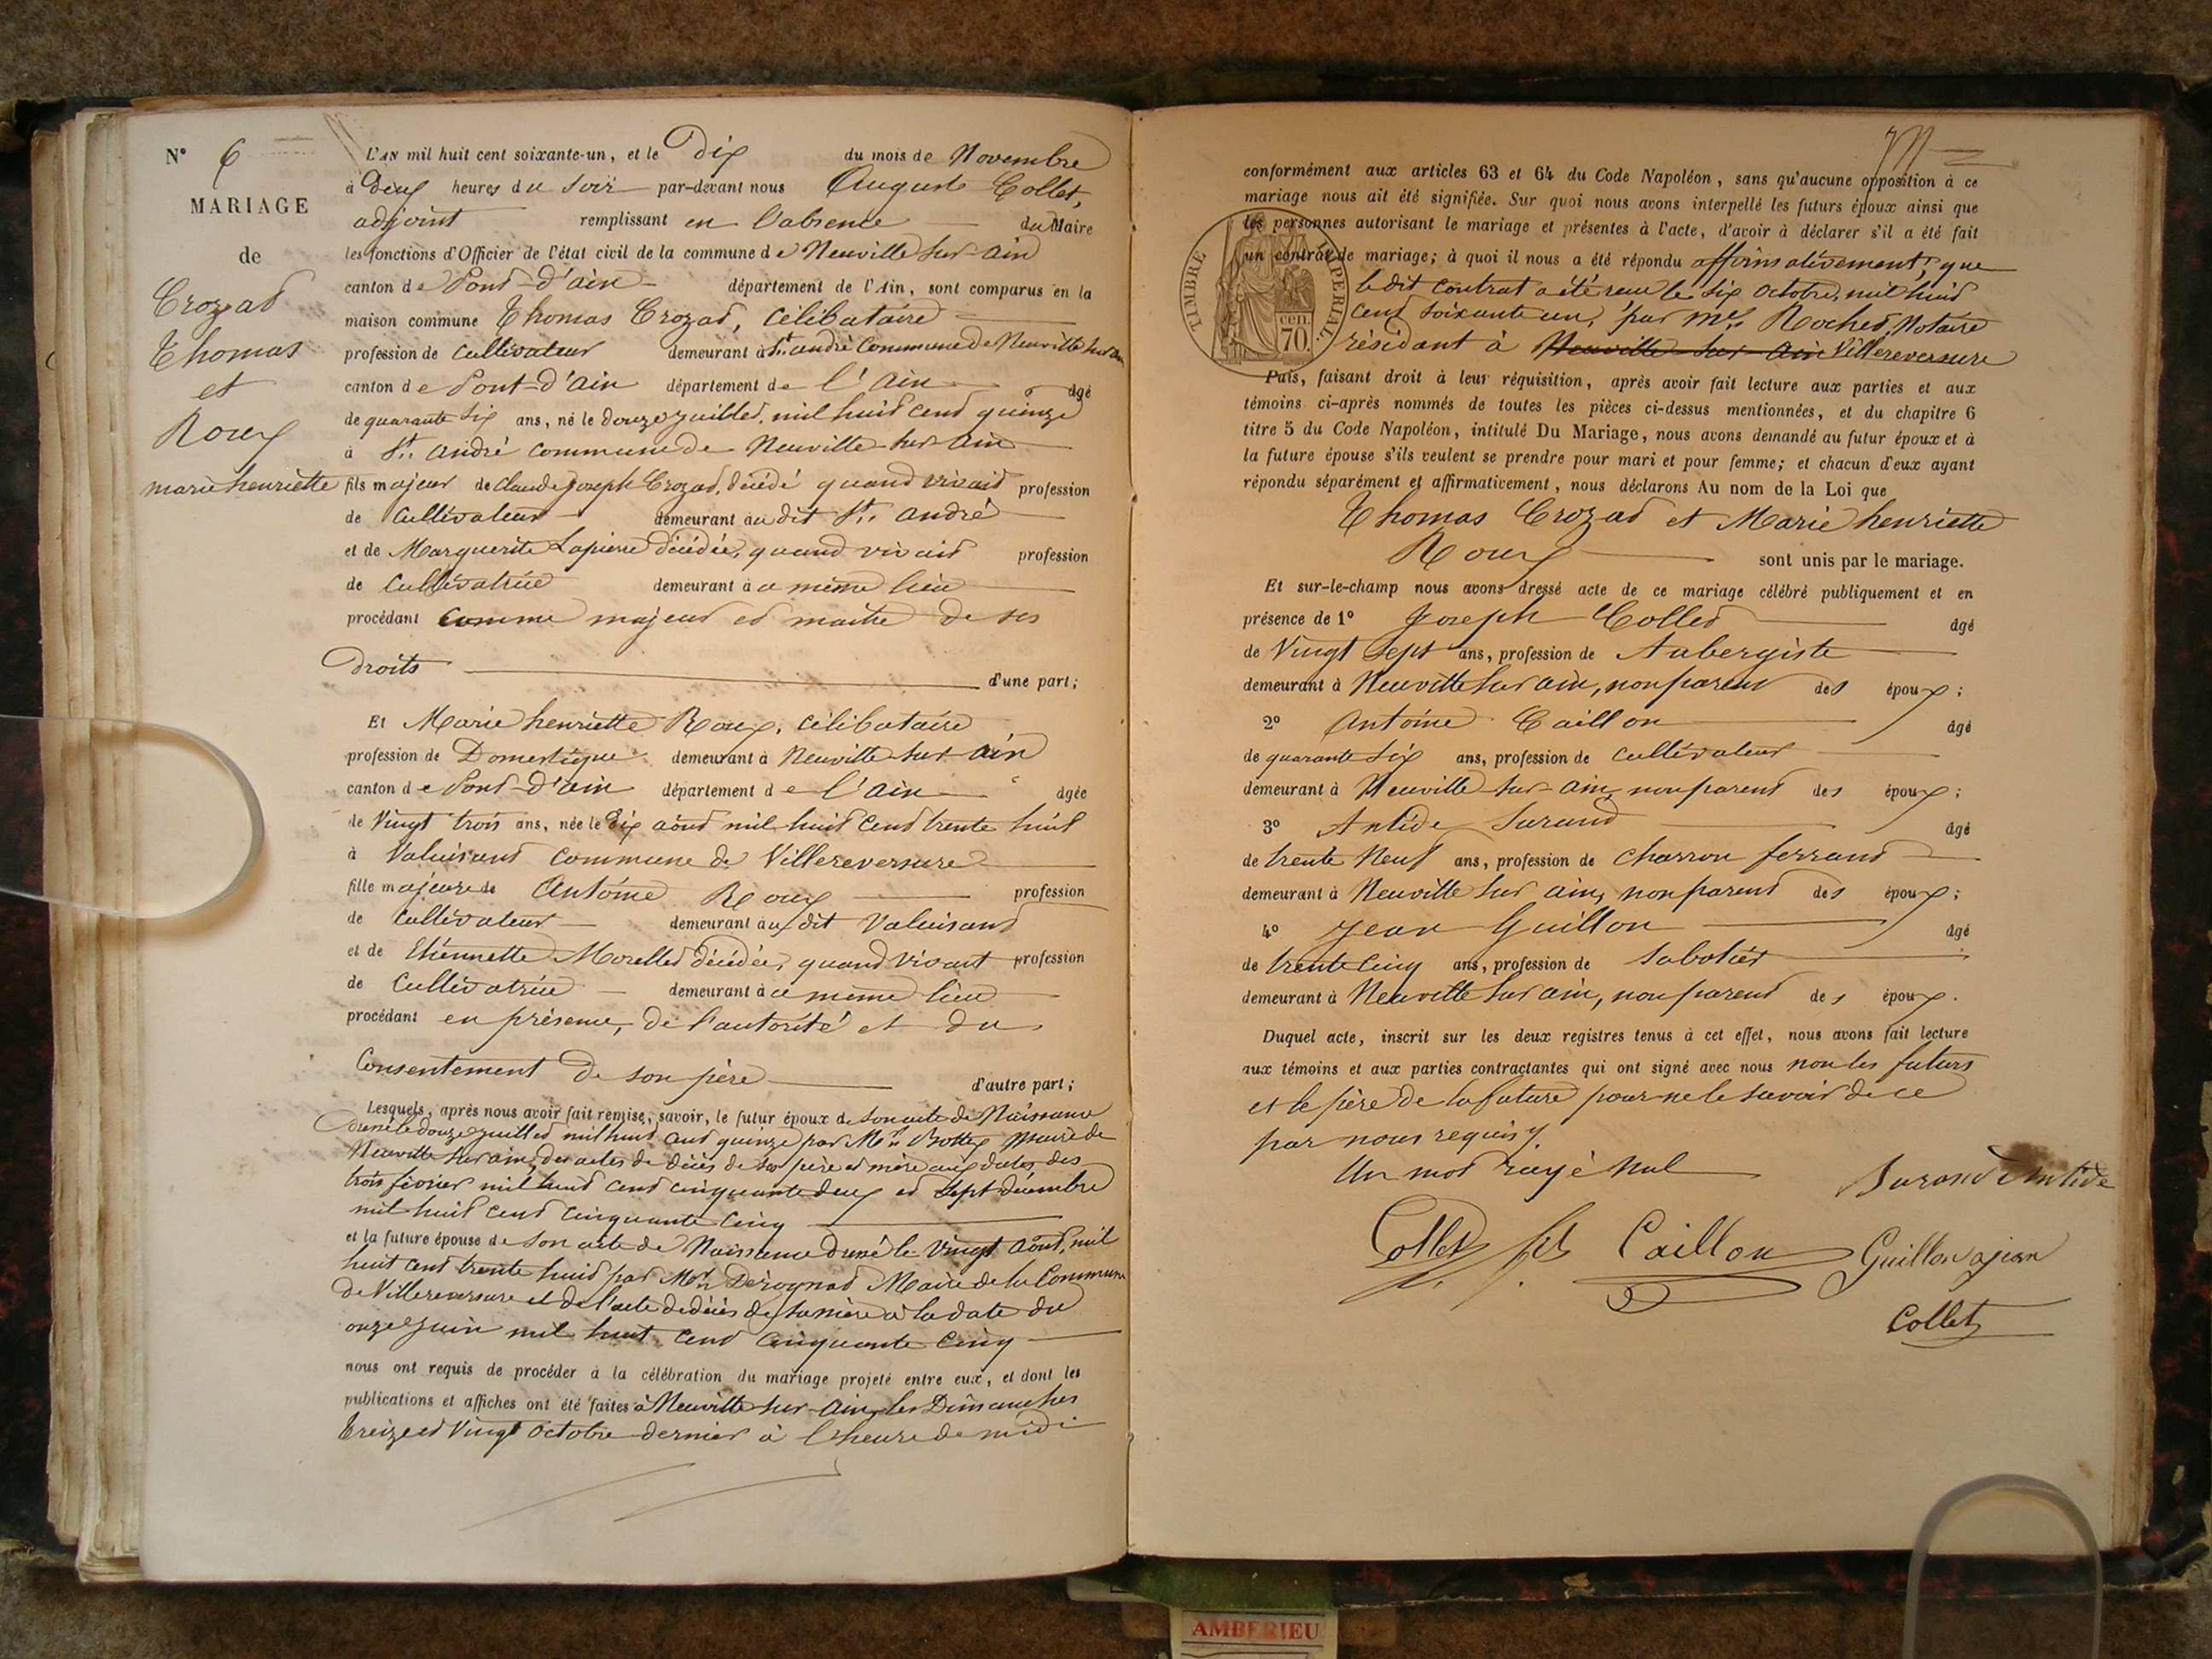 N° 6
MARIAGE
de
Crozat
Thomas
et
Roux
marie henriette
L'AN mil huit cent soixante-un, et le Dix du mois de Novembre
à Deux heures du Soir par-devant nous Auguste Collet,
adjoint remplissant en l'absence du Maire
les fonctions d'Officier de l'état civil de la commune de Neuville sur-ain
canton de Pont-d'ain département de l'Ain, sont comparus en la
maison commune Thomas Crozat, célibataire
profession de cultivateur demeurant à St. andré Commune de Neuville sur ain
canton de Pont-d'ain département de l'Ain âgé
de quarante six ans, né le Douze Juillet, mil huit cent quinze
à St. andré commune de Neuville sur ain
fils majeur de Claude Joseph Crozat, décédé quand vivait profession
de Cultivateur demeurant au dit St. andré
et de Marguerite Lapierre décédée, quand vivait profession
de Cultivatrice demeurant à ce même lieu
procédant comme majeur et maitre de ses
Droits d'une part;
Et Marie henriette Roux, célibataire
profession de Domestique demeurant à Neuville sur ain
canton de Pont-d'ain département de l'Ain âgée
de Vingt trois ans, née le Dix août mil huit cent trente huit
à Valuisant commune de Villereversure
fille majeure de Antoine Roux profession
de Cultivateur demeurant au dit Valuisant
et de Etiennette Morellet décédée, quand vivait profession
de Cultivatrice demeurant à ce même lieu
procédant en présence, de l'autorité et du
Consentement de son père d'autre part;
Lesquels, après nous avoir fait remise, savoir, le futur époux de son acte de Naissance
daté le douze Juillet mil huit cent quinze par Mr. Bottex Maire de
Neuville sur ain, des actes de décès de ses père et mère aux dates des
trois février mil huit cent cinquante deux et sept décembre
mil huit cent cinquante cinq
et la future épouse de son acte de Naissance daté le Vingt Août, mil
huit cent trente huit par Mr. Derognat Maire de la Commune
de Villereversure et de l'acte de décès de sa mère à la date du
onze Juin mil huit cent cinquante cinq
nous ont requis de procéder à la célébration du mariage projeté entre eux, et dont les
publications et affiches ont été faites à Neuville sur-ain, les Dimanches
treize et Vingt octobre dernier à l'heure de midi
conformément aux articles 63 et 64 du Code Napoléon, sans qu'aucune opposition à ce
mariage nous ait été signifiée. Sur quoi nous avons interpellé les futurs époux ainsi que
les personnes autorisant le mariage et présentes à l'acte, d'avoir à déclarer s'il a été fait
un contrat de mariage; à quoi il nous a été répondu affirmativement, que
TIMBRE IMPERIAL.
cen.
70.
le dit contrat a été reçu le six octobre, mil huit
cent soixante un, par Me. Rochet, Notaire
résidant à Neuville sur ain Villereversure
Puis, faisant droit à leur réquisition, après avoir fait lecture aux parties et aux
témoins ci-après nommés de toutes les pièces ci-dessus mentionnées, et du chapitre 6
titre 5 du Code Napoléon, intitulé Du Mariage, nous avons demandé au futur époux et à
la future épouse s'ils veulent se prendre pour mari et pour femme; et chacun d'eux ayant
répondu séparément et affirmativement, nous déclarons Au nom de la Loi que
Thomas Crozat et Marie henriette
Roux sont unis par le mariage.
Et sur-le-champ nous avons dressé acte de ce mariage célébré publiquement et en
présence de 1° Joseph Collet âgé
de Vingt Sept ans, profession de Aubergiste
demeurant à Neuville sur ain, non parent des époux;
2° Antoine Caillon âgé
de quarante six ans, profession de cultivateur
demeurant à Neuville sur-ain, non parent des époux;
3° Antide Surand âgé
de trente Neuf ans, profession de Charron ferrant
demeurant à Neuville sur ain, non parent des époux;
4° Jean Guillon âgé
de trente Cinq ans, profession de Sabotier
demeurant à Neuville sur ain, non parent des époux.
Duquel acte, inscrit sur les deux registres tenus à cet effet, nous avons fait lecture
aux témoins et aux parties contractantes qui ont signé avec nous non les futurs
et le père de la future pour ne le savoir de ce
par nous requis.
Un mot rayé nul
Surand Antide
Collet fils Caillon Guillon jean
Collet
AMBERIEU